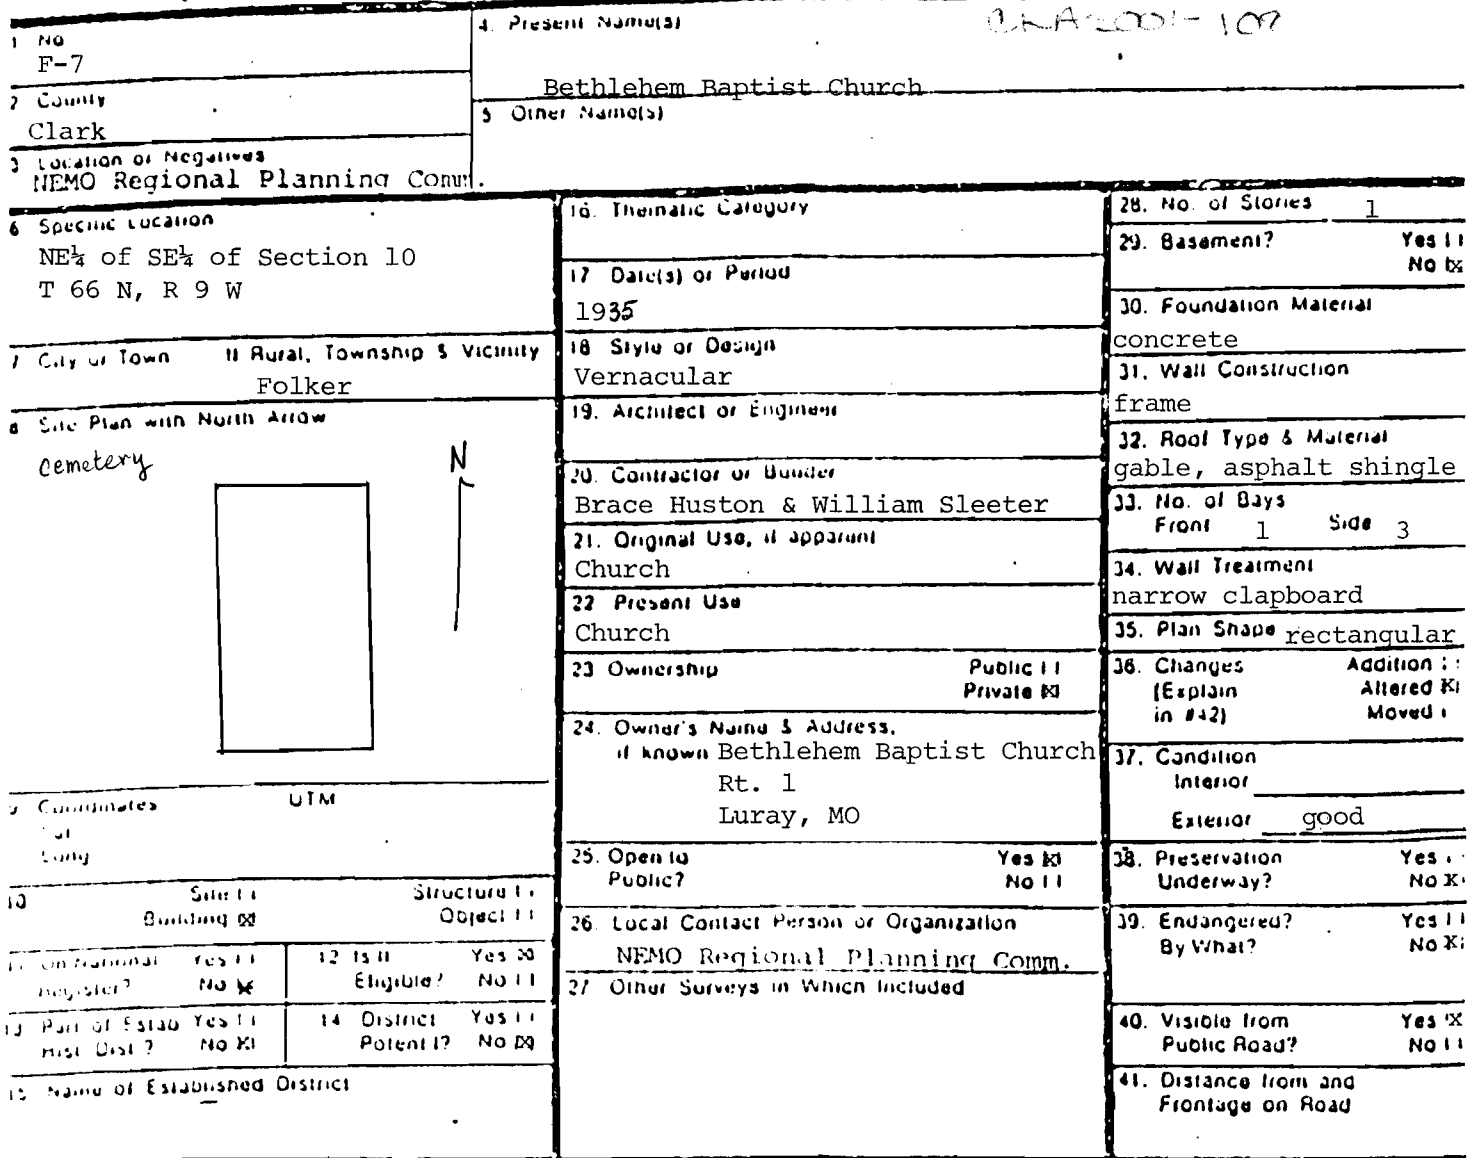 1 No
F-7
4. Present Name(s)
Bethlehem Baptist Church
2 County
Clark
5 Other Name(s)
3 Location of Negatives
NEMO Regional Planning Comm.
6 Specific Location
NE¼ of SE¼ of Section 10
T 66 N, R 9 W
7 City or Town If Rural, Township & Vicinity
Folker
8 Site Plan with North Arrow
cemetery
N
9 Coordinates UTM
Lat
Long
10 Site Structure
Building [X] Object
11 On National Register? Yes No [X]
12 Is It Eligible? Yes [X] No
13 Part of Estab Hist Dist? Yes No [X]
14 District Potent'l? Yes No [X]
15 Name of Established District
16. Thematic Category
17 Date(s) or Period
1935
18 Style or Design
Vernacular
19. Architect or Engineer
20. Contractor or Builder
Brace Huston & William Sleeter
21. Original Use, if apparent
Church
22 Present Use
Church
23 Ownership Public
Private [X]
24. Owner's Name & Address,
if known Bethlehem Baptist Church
Rt. 1
Luray, MO
25. Open to Public? Yes [X] No
26. Local Contact Person or Organization
NEMO Regional Planning Comm.
27 Other Surveys in Which Included
28. No. of Stories 1
29. Basement? Yes
No [X]
30. Foundation Material
concrete
31. Wall Construction
frame
32. Roof Type & Material
gable, asphalt shingle
33. No. of Bays
Front 1 Side 3
34. Wall Treatment
narrow clapboard
35. Plan Shape rectangular
36. Changes Addition
(Explain Altered [X]
in #42) Moved
37. Condition
Interior
Exterior good
38. Preservation Yes
Underway? No X
39. Endangered? Yes
By What? No X
40. Visible from Yes X
Public Road? No
41. Distance from and
Frontage on Road